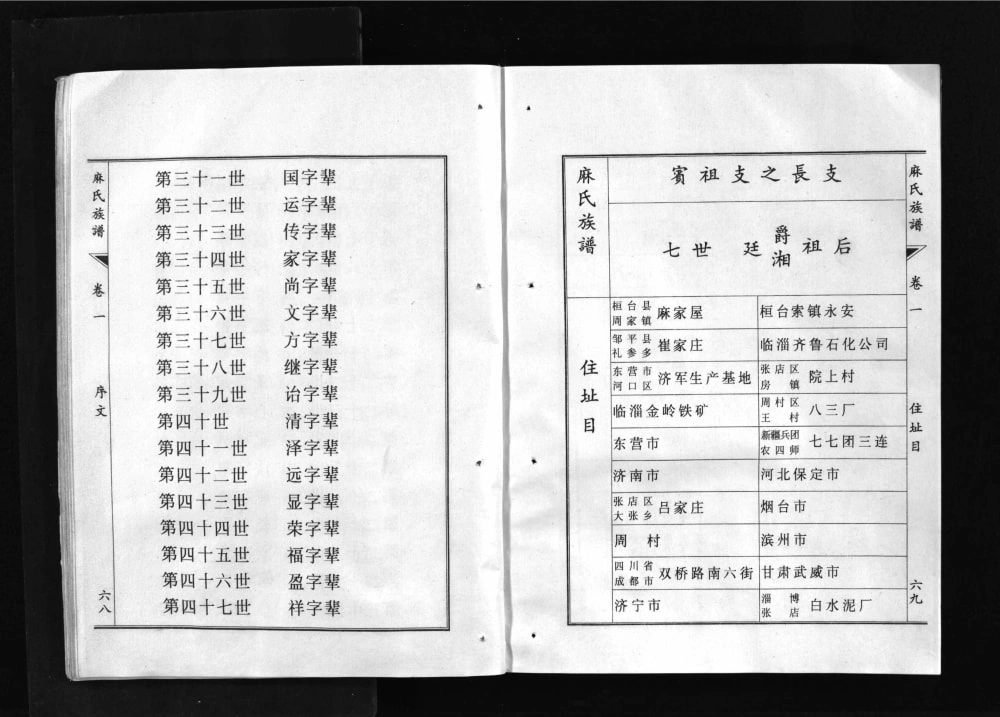 麻氏族譜
卷一
序文
六八
第三十一世 国字辈
第三十二世 运字辈
第三十三世 传字辈
第三十四世 家字辈
第三十五世 尚字辈
第三十六世 文字辈
第三十七世 方字辈
第三十八世 继字辈
第三十九世 诒字辈
第四十世 清字辈
第四十一世 泽字辈
第四十二世 远字辈
第四十三世 显字辈
第四十四世 荣字辈
第四十五世 福字辈
第四十六世 盈字辈
第四十七世 祥字辈
麻氏族譜
賓祖支之長支
七世 廷爵湘祖后
住址目
桓台县周家镇 麻家屋
桓台索镇永安
邹平县礼参乡 崔家庄
临淄齐鲁石化公司
东营市河口区 济军生产基地
张店区房镇 院上村
临淄金岭铁矿
周村区王村 八三厂
东营市
新疆兵团农四师 七七团三连
济南市
河北保定市
张店区大张乡 吕家庄
烟台市
周村
滨州市
四川省成都市 双桥路南六街
甘肃武威市
济宁市
淄博张店 白水泥厂
麻氏族譜
卷一
住址目
六九